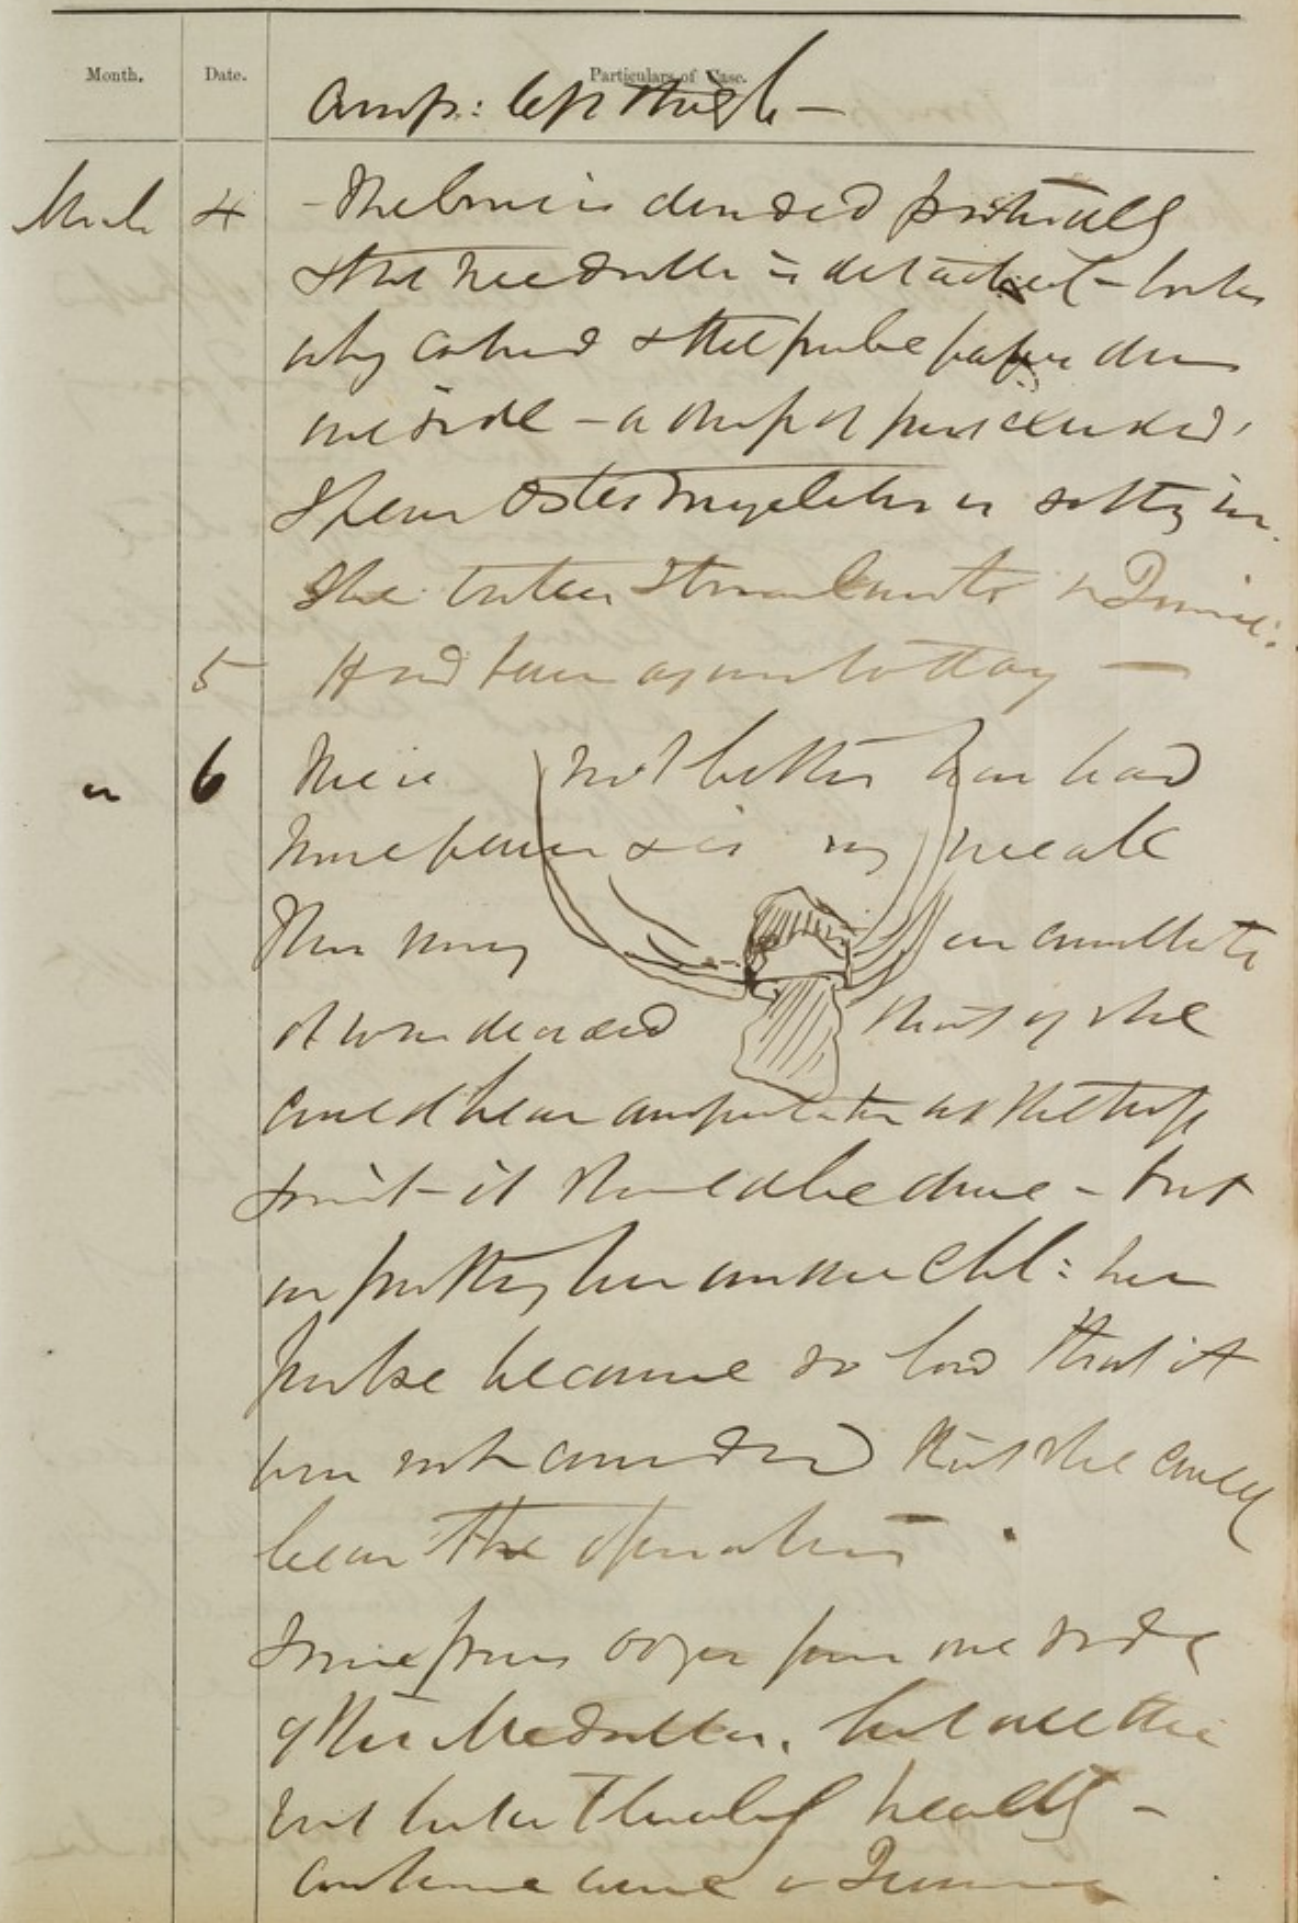 Month. Date. Particulars of Case.
Amp: left thigh —
March 4 - The bone is denuded partially
& the medulla is detached - looks
& the probe passes down
one side - a drop of pus exuded,
I fear Osteomyelitis is setting in.
She takes Stimulants & Quinine:
5 Had fever again to day —
" 6 She is not better has had
more fever & is very weak
This mng in consultn
it was decided that if she
could bear amputation at the hip
joint - it should be done - but
on putting her under Chl: her
pulse became so low that it
was not considered that she could
bear the operation.
Some pus oozes from one side
of the Medulla, but all the
rest looks thoroughly healthy -
continue wine & Quinine